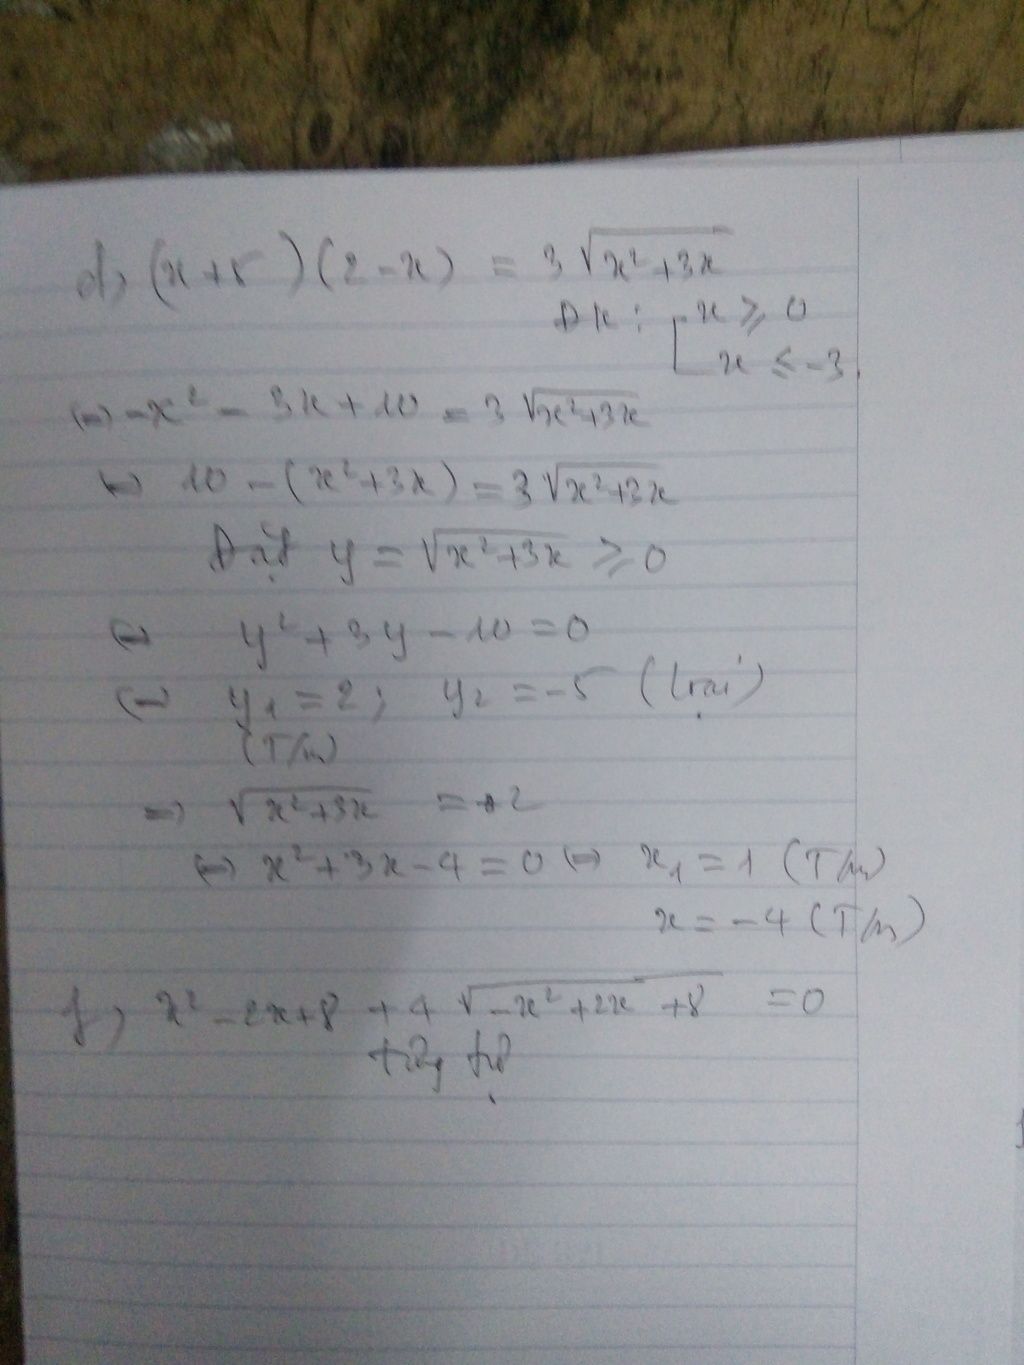 d, (x+5)(2-x) = 3√(x²+3x)
ĐK: [ x ≥ 0
x ≤ -3
(=) -x² - 3x + 10 = 3√(x²+3x)
(=) 10 - (x²+3x) = 3√(x²+3x)
Đặt y = √(x²+3x) ≥ 0
(=) y² + 3y - 10 = 0
(=) y₁ = 2; y₂ = -5 (loại)
(T/m)
=) √(x²+3x) = 2
(=) x² + 3x - 4 = 0 (=) x₁ = 1 (T/m)
x = -4 (T/m)
f, x² - 2x + 8 + 4√(-x²+2x+8) = 0
tương tự